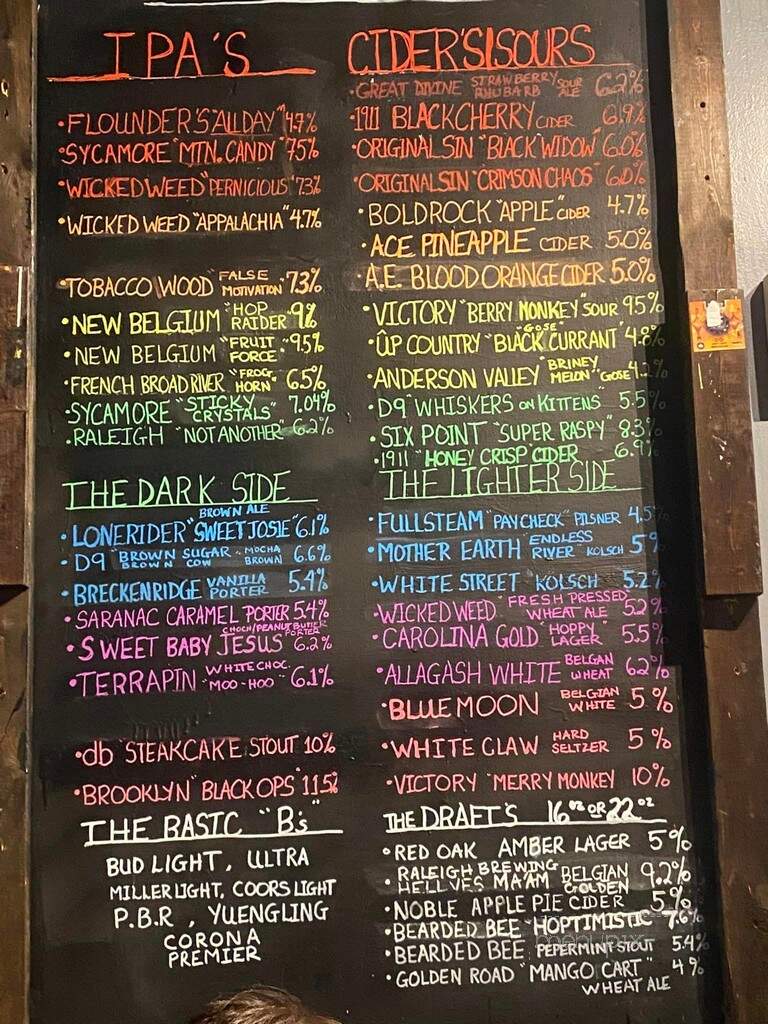 IPA'S
•FLOUNDER'S "ALL DAY" 4.7%
•SYCAMORE "MTN. CANDY" 7.5%
•WICKED WEED "PERNICIOUS" 7.3%
•WICKED WEED "APPALACHIA" 4.7%
•TOBACCO WOOD "FALSE MOTIVATION" 7.3%
•NEW BELGIUM "HOP RAIDER" 9%
•NEW BELGIUM "FRUIT FORCE" 9.5%
•FRENCH BROAD RIVER "FROG HORN" 6.5%
•SYCAMORE "STICKY CRYSTALS" 7.04%
•RALEIGH "NOT ANOTHER" 6.2%
THE DARK SIDE
•LONERIDER "SWEET JOSIE" BROWN ALE 6.1%
•D9 "BROWN SUGAR BROWN COW" MOCHA BROWN 6.6%
•BRECKENRIDGE VANILLA PORTER 5.4%
•SARANAC CARAMEL PORTER 5.4%
•SWEET BABY JESUS CHOCH/PEANUT BUTTER PORTER 6.2%
•TERRAPIN WHITE CHOC. "MOO-HOO" 6.1%
•db "STEAKCAKE STOUT 10%
•BROOKLYN "BLACK OPS" 11.5%
THE BASIC "B's"
BUD LIGHT, ULTRA
MILLER LIGHT, COORS LIGHT
P.B.R, YUENGLING
CORONA
PREMIER
CIDER'S/SOURS
•GREAT DIVINE STRAWBERRY RHUBARB SOUR ALE 6.2%
•1911 BLACK CHERRY CIDER 6.9%
•ORIGINAL SIN "BLACK WIDOW" 6.0%
•ORIGINAL SIN "CRIMSON CHAOS" 6.0%
•BOLDROCK "APPLE" CIDER 4.7%
•ACE PINEAPPLE CIDER 5.0%
•A.E. BLOOD ORANGE CIDER 5.0%
•VICTORY "BERRY MONKEY" SOUR 9.5%
•ÛP COUNTRY "BLACK CURRANT" GOSE 4.8%
•ANDERSON VALLEY "BRINEY MELON" GOSE 4.2%
•D9 "WHISKERS ON KITTENS" 5.5%
•SIX POINT "SUPER RASPY" 8.3%
•1911 "HONEY CRISP CIDER 6.9%
THE LIGHTER SIDE
•FULLSTEAM "PAYCHECK" PILSNER 4.5%
•MOTHER EARTH "ENDLESS RIVER" KOLSCH 5%
•WHITE STREET KOLSCH 5.2%
•WICKED WEED "FRESH PRESSED" WHEAT ALE 5.2%
•CAROLINA GOLD HOPPY LAGER 5.5%
•ALLAGASH WHITE BELGAN WHEAT 6.2%
•BLUE MOON BELGIAN WHITE 5%
•WHITE CLAW HARD SELTZER 5%
•VICTORY "MERRY MONKEY 10%
THE DRAFT'S 16oz OR 22oz
•RED OAK AMBER LAGER 5%
•RALEIGH BREWING HELLYES MA'AM BELGIAN GOLDEN 9.2%
•NOBLE APPLE PIE CIDER 5%
•BEARDED BEE "HOPTIMISTIC" 7.6%
•BEARDED BEE PEPERMINT STOUT 5.4%
•GOLDEN ROAD "MANGO CART" 4%
WHEAT ALE